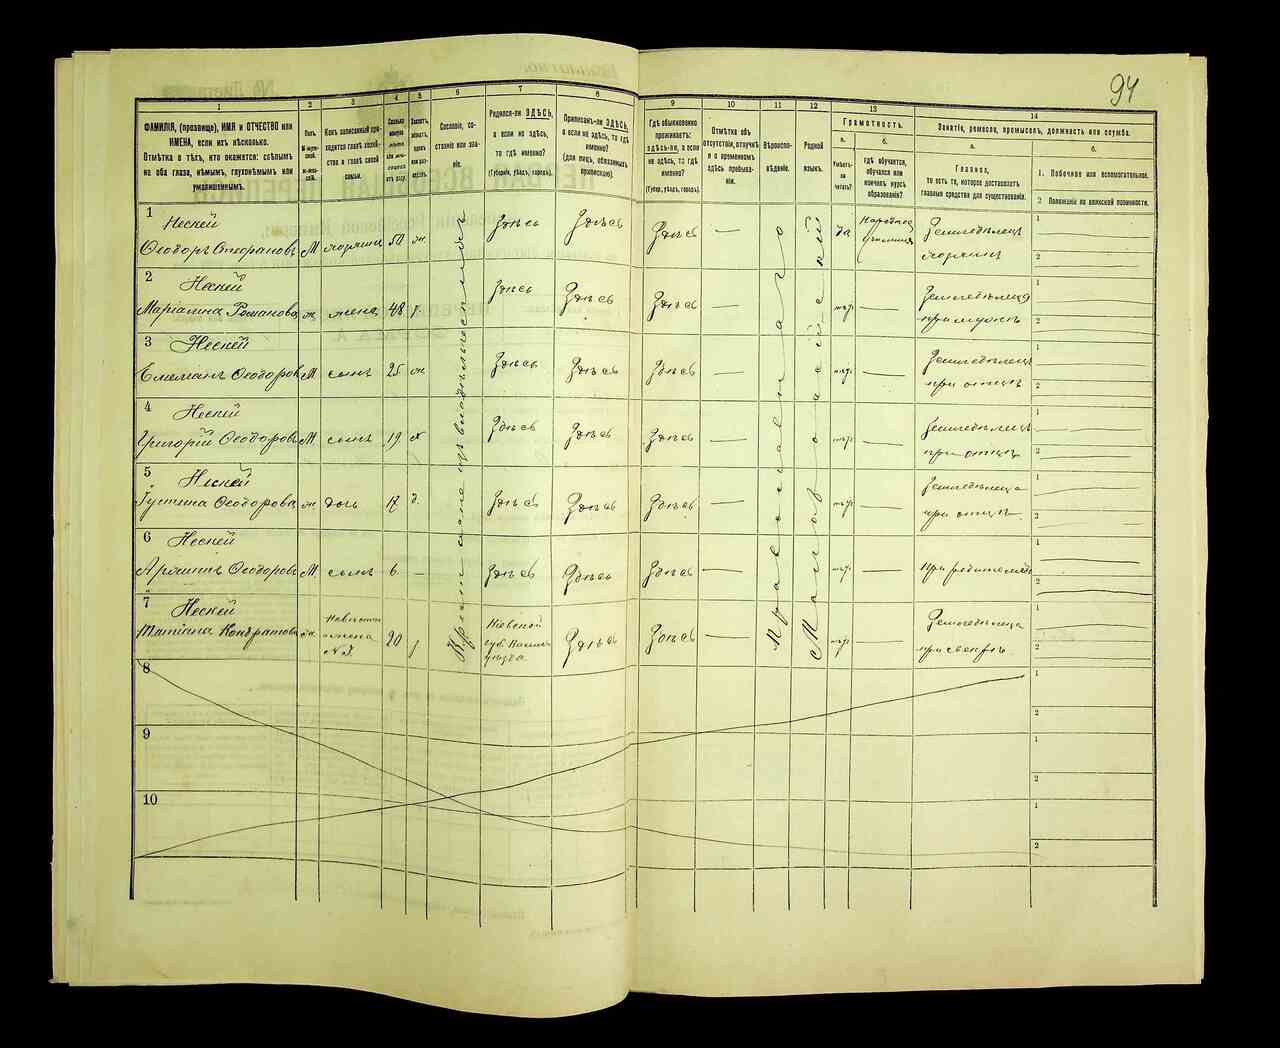 94
1 2 3 4 5 6 7 8 9 10 11 12 13 14
ФАМИЛІЯ, (прозвище), ИМЯ и ОТЧЕСТВО или
ИМЕНА, если ихъ нѣсколько.
Отмѣтка о тѣхъ, кто окажется: слѣпымъ
на оба глаза, нѣмымъ, глухонѣмымъ или
умалишеннымъ.
Полъ.
Какъ записанный при-
ходится главѣ хозяй-
ства и главѣ своей
семьи.
Сословіе, со-
стояніе или зва-
ніе.
Родился-ли ЗДѢСЬ,
а если не здѣсь,
то гдѣ именно?
(Губернія, уѣздъ, городъ).
Приписанъ-ли ЗДѢСЬ,
а если не здѣсь, то гдѣ
именно?
(для лицъ, обязанныхъ
припискою).
Гдѣ обыкновенно
проживаетъ:
здѣсь-ли, а если
не здѣсь, то гдѣ
именно?
(Губер., уѣздъ, городъ).
Отмѣтка объ
отсутствіи, отлучкѣ
и о временномъ
здѣсь пребыва-
ніи.
Вѣроиспо-
вѣданіе.
Родной
языкъ.
Грамотность.
а.
Умѣетъ-
ли
читать?
б.
гдѣ обучается,
обучался или
кончилъ курсъ
образованія?
Занятіе, ремесло, промыселъ, должность или служба.
а.
Главное,
то есть то, которое доставляетъ
главныя средства для существованія.
б.
1. Побочное или вспомогательное.
2 Положеніе по воинской повинности.
1
Нескей
Ѳеодоръ М хозяинъ ж. Здѣсь Здѣсь Здѣсь — да
Земледѣлецъ
хозяинъ
1
2
2
Нескей
Маріанна Романова ж. жена 48 Здѣсь Здѣсь Здѣсь — нѣтъ —
при мужѣ
1
2
3
Нескей
Емеліанъ Ѳеодоровъ М сынъ 25 ж Здѣсь Здѣсь Здѣсь — нѣтъ —
Земледѣлецъ
при отцѣ
1
2
4
Нескей
Григорій Ѳеодоровъ М сынъ 19 х Здѣсь Здѣсь Здѣсь — нѣтъ —
Земледѣлецъ
при отцѣ
1
2
5
Нескей
Іустина Ѳеодорова ж дочь 17 д. Здѣсь Здѣсь Здѣсь — нѣтъ —
при отцѣ
1
2
6
Нескей
Ѳеодоровъ М сынъ 6 — Здѣсь Здѣсь Здѣсь — нѣтъ —
При родителяхъ
1
2
7
Нескей
Татіана Кондратова
Невѣстка
жена
№ 3.
20
Кіевской
губ.
уѣзда
Здѣсь Здѣсь — нѣтъ —
Земледѣлица
при свекрѣ
1
2
Крестьяне изъ владѣльческихъ
Православнаго
Малороссійскій
8
1
2
9
1
2
10
1
2